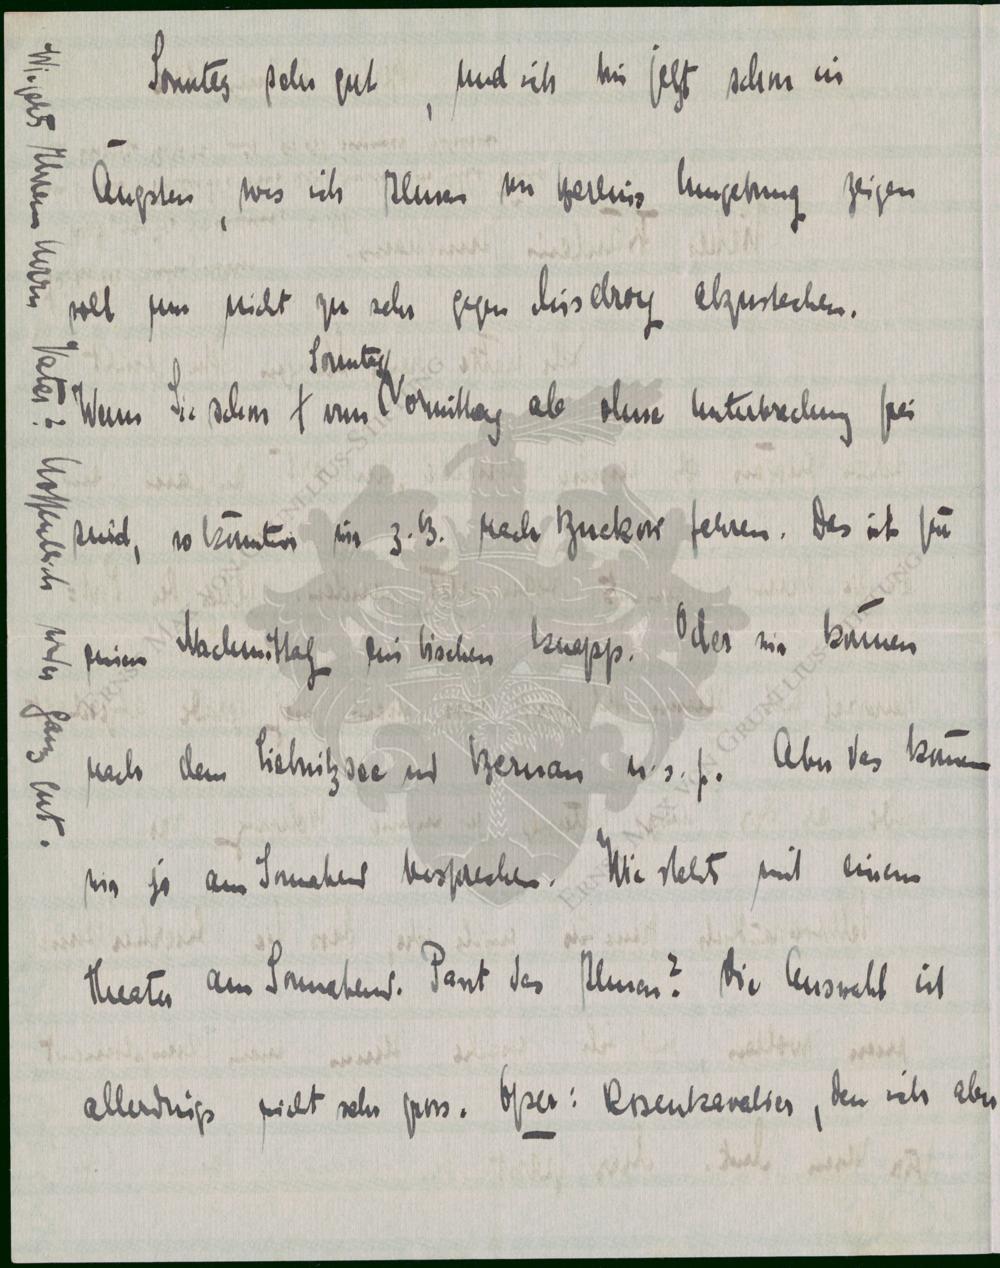 Sonntag sehr gut, und ich bin jetzt schon in
Ängsten, was ich Ihnen von Berlins Umgebung zeigen
soll um nicht zu sehr gegen Misdroy abzustechen.
Sonntag
Wenn Sie schon vom Vormittag ab ohne Unterbrechung frei
sind, so könnten wir z.B. nach Buckow fahren. Das ist für
einen Nachmittag ein bischen knapp. Oder wir können
nach dem Liebnitzsee und Bernau u.s.f. Aber das können
wir ja am Sonnabend besprechen. Wie stehts mit einem
Theater am Sonnabend. Passt das Ihnen? Die Auswahl ist
allerdings nicht sehr gross. Oper: Rosenkavalier, den ich aber
Wie gehts Ihrem Herrn Vater? Hoffentlich wieder ganz gut.
ERNST MAX VON GRUNELIUS-STIFTUNG
ERNST MAX VON GRUNELIUS-STIFTUNG